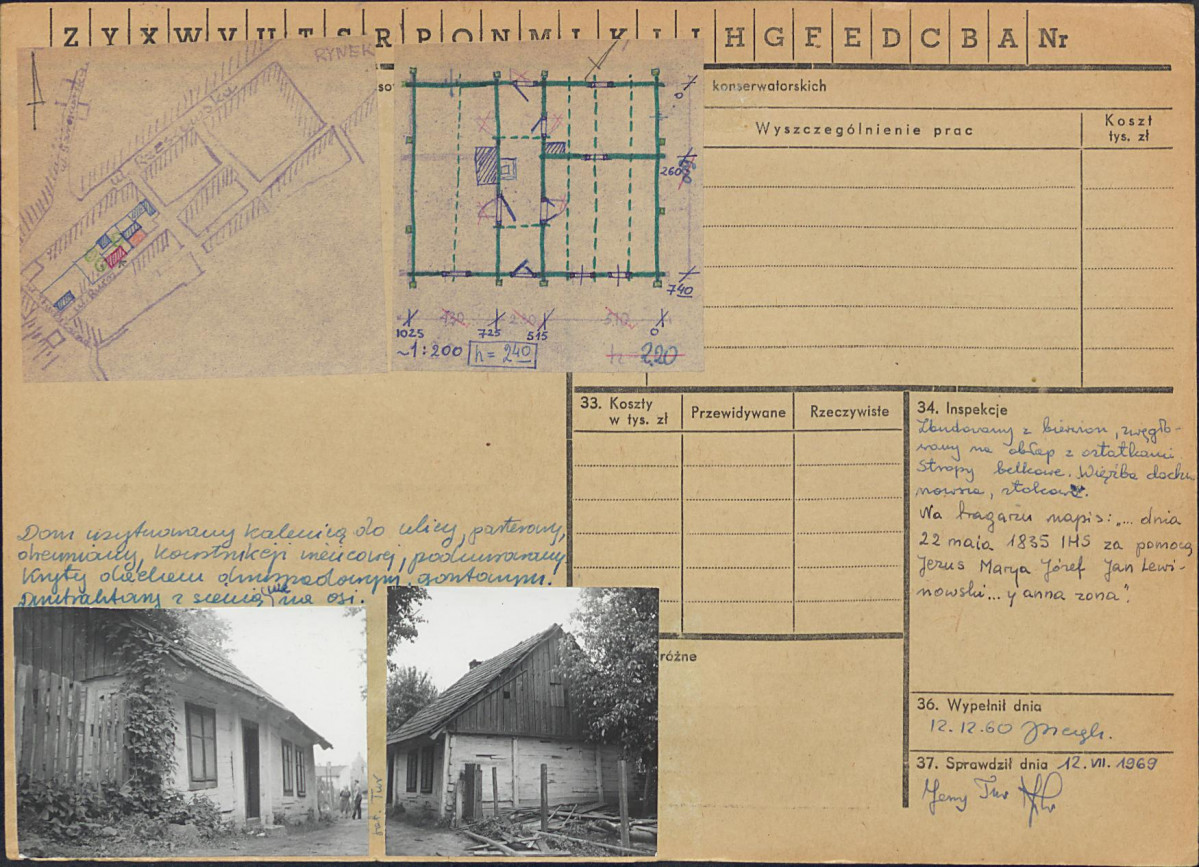 Z Y X W V U T S R P O N M L K J I H G F E D C B A Nr
RYNEK
konserwatorskich
Wyszczególnienie prac
Koszt
tys. zł
260
740
1025 725 515 0
~1:200 h = 240 220
33. Koszty
w tys. zł
Przewidywane
Rzeczywiste
34. Inspekcje
Zbudowany z bierwion, węgło-
wany na obłap z ostatkami
Stropy belkowe. Więźba dacho
nowsza, stolcowa.
Na tragarzu napis: „... dnia
22 maia 1835 IHS za pomocą
Jezus Marya Józef Jan Lewi-
nowski... y anna zona".
Dom usytuowany kalenicą do ulicy, parterowy,
drewniany, konstrukcji wieńcowej, podmurowany
Kryty dachem dwuspadowym, gontowym.
z sienią nie na osi.
różne
fot. Tur
36. Wypełnił dnia
12.12.60
37. Sprawdził dnia 12.VII.1969
Jerzy Tur